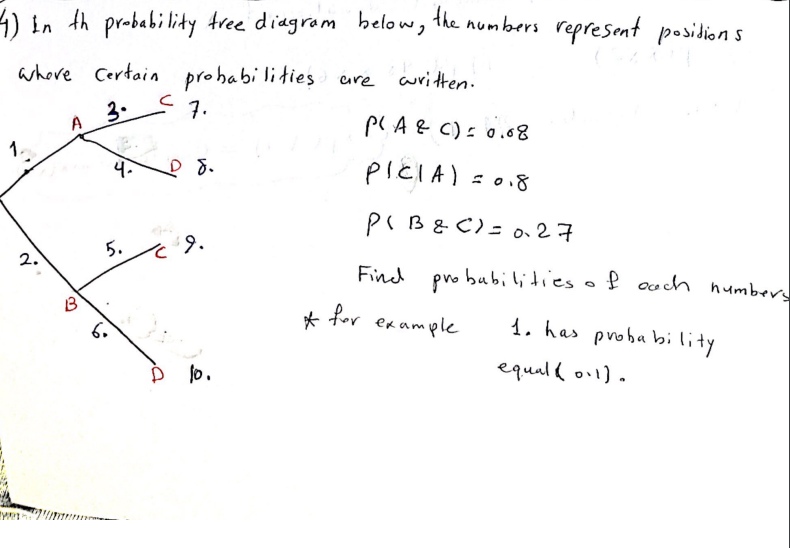 4) In th probability tree diagram below, the numbers represent positions
where certain probabilities are written.
3. C 7.
A
1.
4. D 8.
P(A & C) = 0.08
P(C|A) = 0.8
P(B & C) = 0.27
5. C 9.
2.
B
6.
D 10.
Find probabilities of each numbers
* for example 1. has probability
equal ( 0.1).